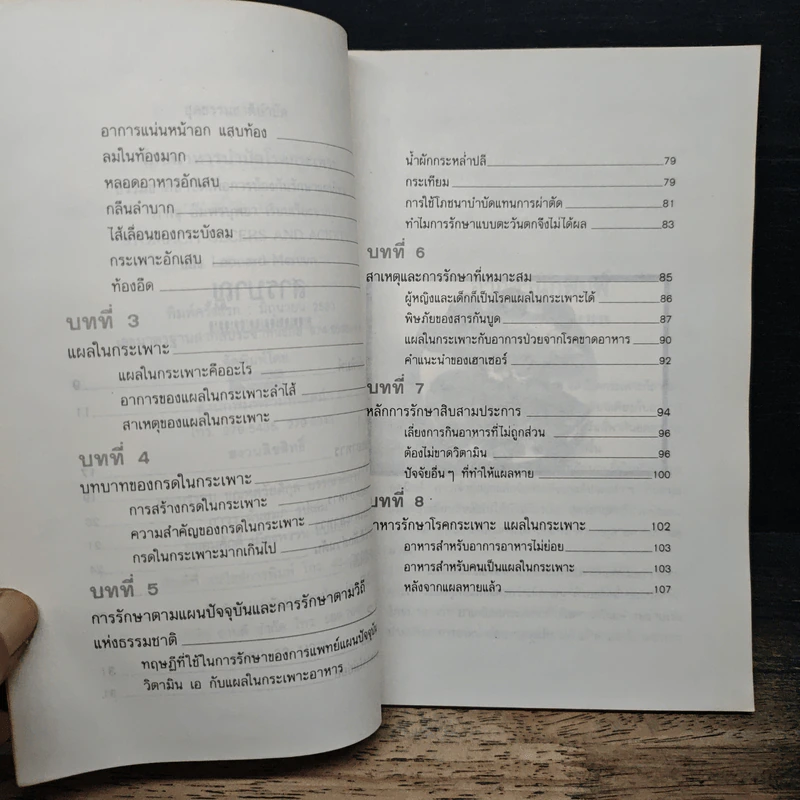 อาการแน่นหน้าอก แสบท้อง
ลมในท้องมาก
หลอดอาหารอักเสบ
กลืนลำบาก
ไส้เลื่อนของกระบังลม
กระเพาะอักเสบ
ท้องอืด
บทที่ 3
แผลในกระเพาะ
แผลในกระเพาะคืออะไร
อาการของแผลในกระเพาะลำไส้
สาเหตุของแผลในกระเพาะ
บทที่ 4
บทบาทของกรดในกระเพาะ
การสร้างกรดในกระเพาะ
ความสำคัญของกรดในกระเพาะ
กรดในกระเพาะมากเกินไป
บทที่ 5
การรักษาตามแผนปัจจุบันและการรักษาตามวิถี
แห่งธรรมชาติ
ทฤษฎีที่ใช้ในการรักษาของการแพทย์แผนปัจจุบัน
วิตามิน เอ กับแผลในกระเพาะอาหาร
น้ำผักกะหล่ำปลี 79
กระเทียม 79
การใช้โภชนาบำบัดแทนการผ่าตัด 81
ทำไมการรักษาแบบตะวันตกจึงไม่ได้ผล 83
บทที่ 6
สาเหตุและการรักษาที่เหมาะสม 85
ผู้หญิงและเด็กก็เป็นโรคแผลในกระเพาะได้ 86
พิษภัยของสารกันบูด 87
แผลในกระเพาะกับอาการป่วยจากโรคขาดอาหาร 90
คำแนะนำของเฮาเซอร์ 92
บทที่ 7
หลักการรักษาสิบสามประการ 94
เลี่ยงการกินอาหารที่ไม่ถูกส่วน 96
ต้องไม่ขาดวิตามิน 96
ปัจจัยอื่น ๆ ที่ทำให้แผลหาย 100
บทที่ 8
อาหารรักษาโรคกระเพาะ แผลในกระเพาะ 102
อาหารสำหรับอาการอาหารไม่ย่อย 103
อาหารสำหรับคนเป็นแผลในกระเพาะ 103
หลังจากแผลหายแล้ว 107